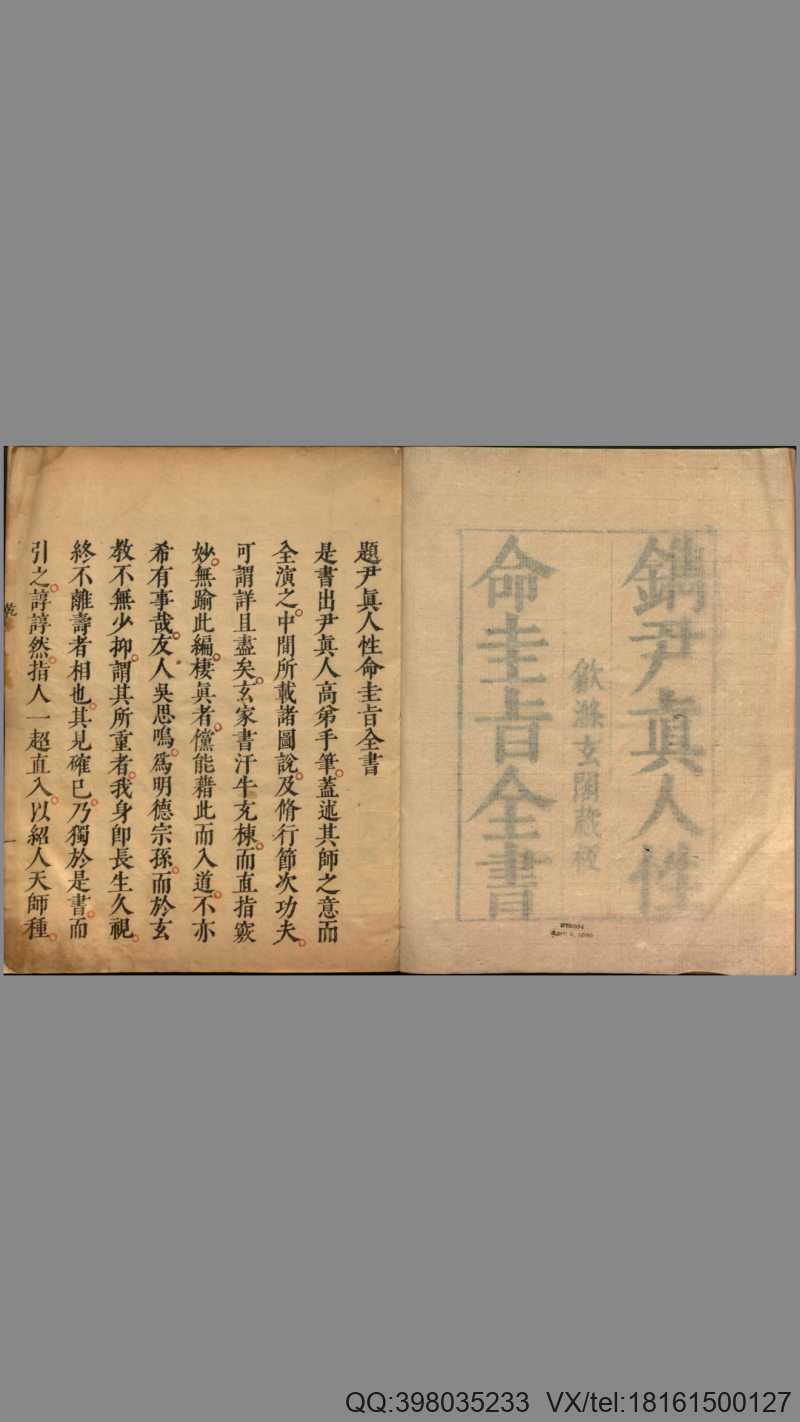 鐫尹真人性
歙滌玄閣藏板
命圭旨全書
題尹真人性命圭旨全書
是書出尹真人高弟手筆蓋述其師之意而
全演之中間所載諸圖說及脩行節次功夫
可謂詳且盡矣玄家書汗牛充棟而直指竅
妙無踰此編棲真者儻能藉此而入道不亦
希有事哉友人吳思鳴為明德宗孫而於玄
教不無少抑謂其所重者我身即長生久視
終不離壽者相也其見確已乃獨於是書而
引之諄諄然指人一超直入以紹人天師種
乾
一
QQ:398035233 VX/tel:18161500127